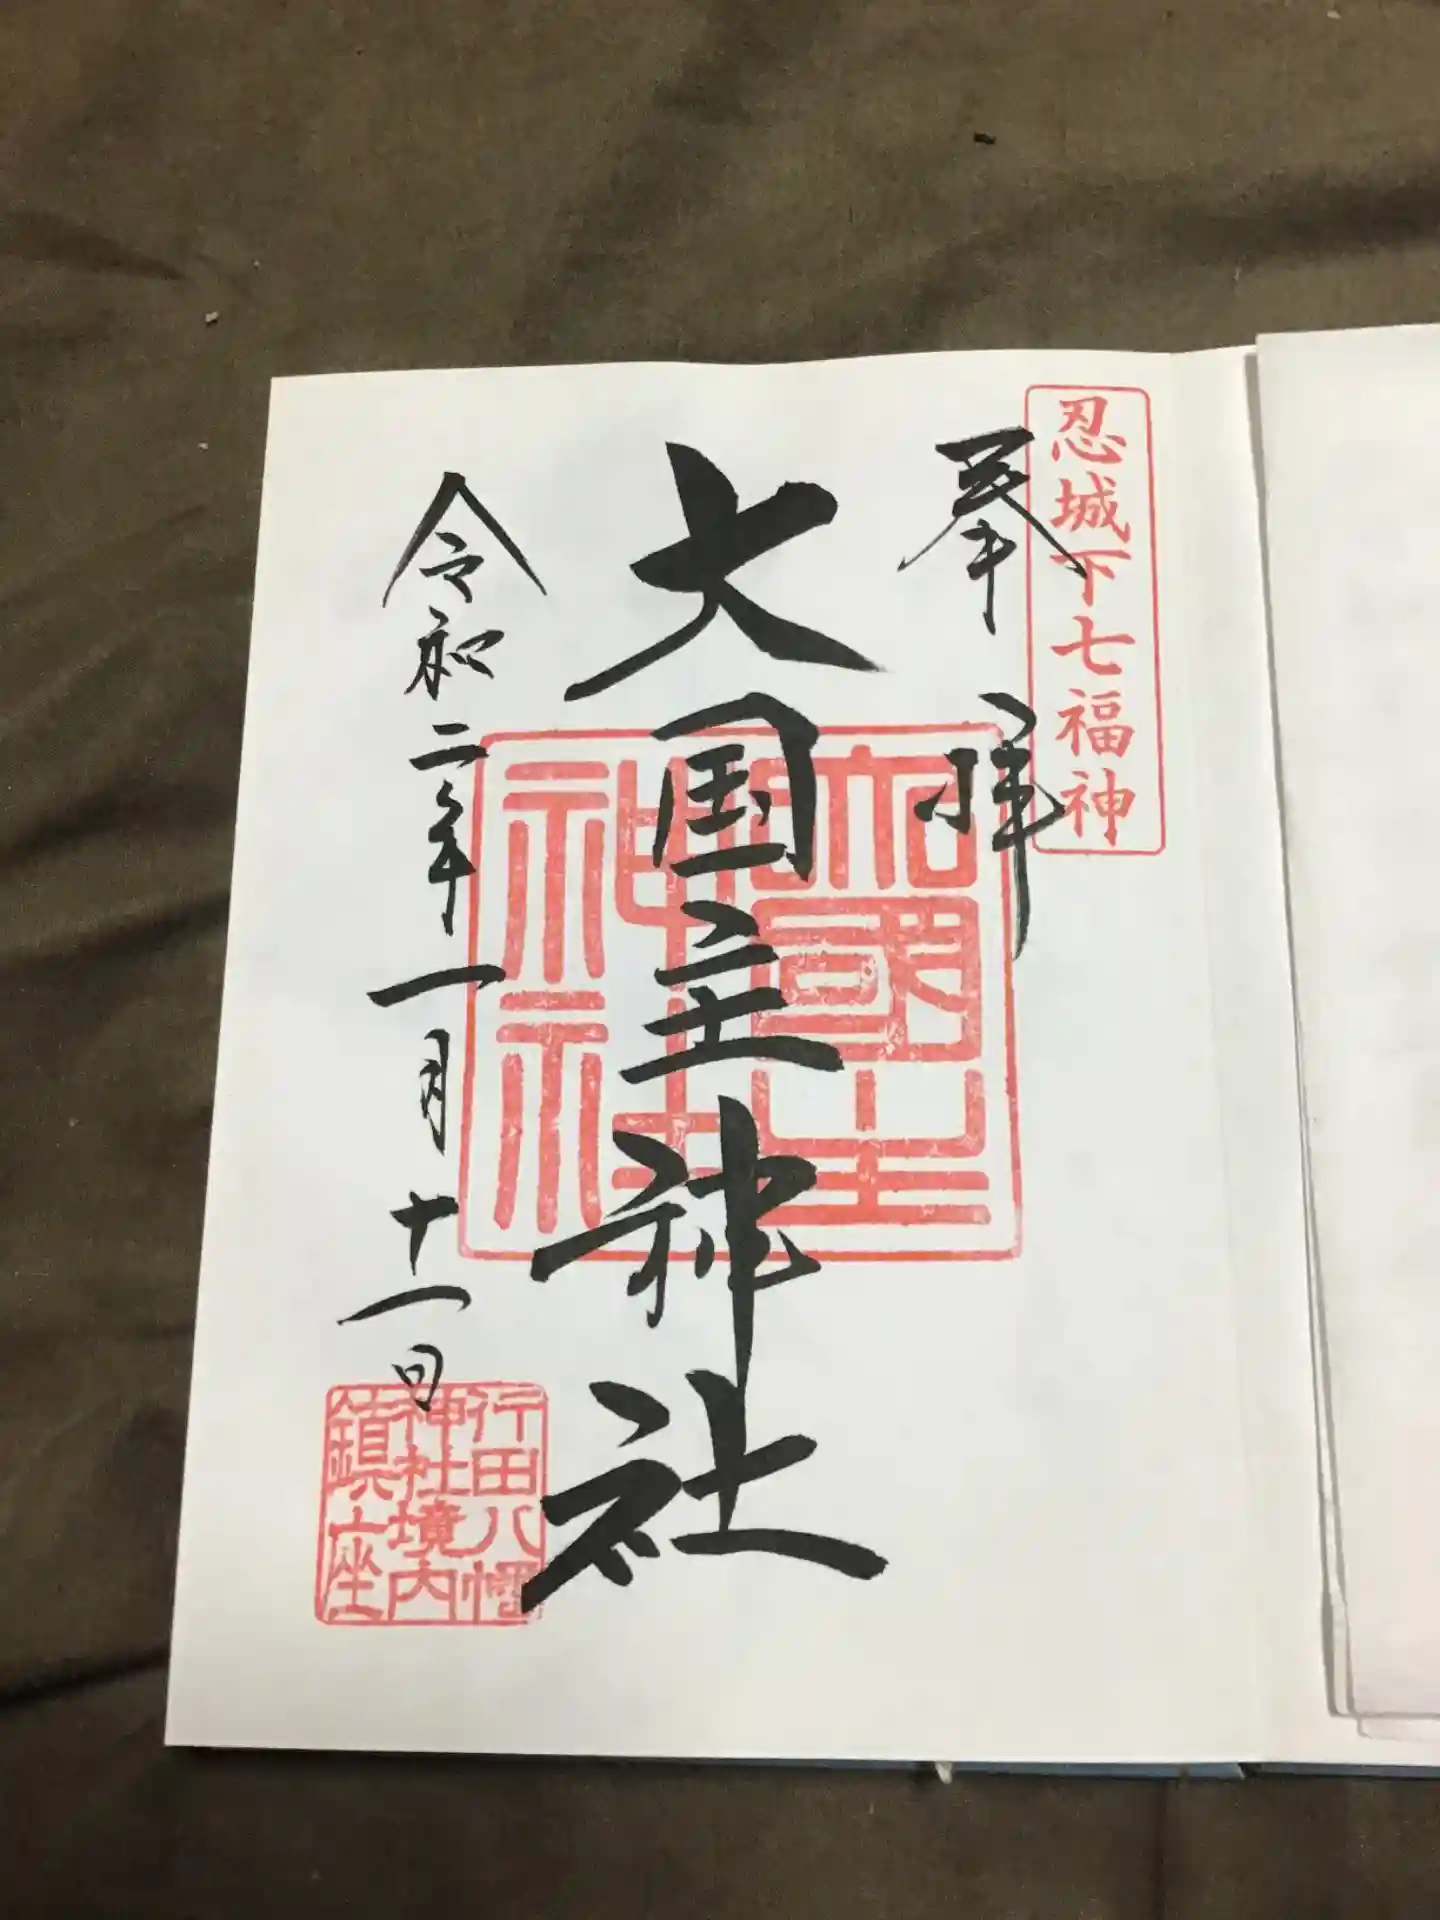 忍城下七福神
奉拝
大国主神社
大國主
神社
令和二年一月十一日
行田八幡
神社境内
鎮座